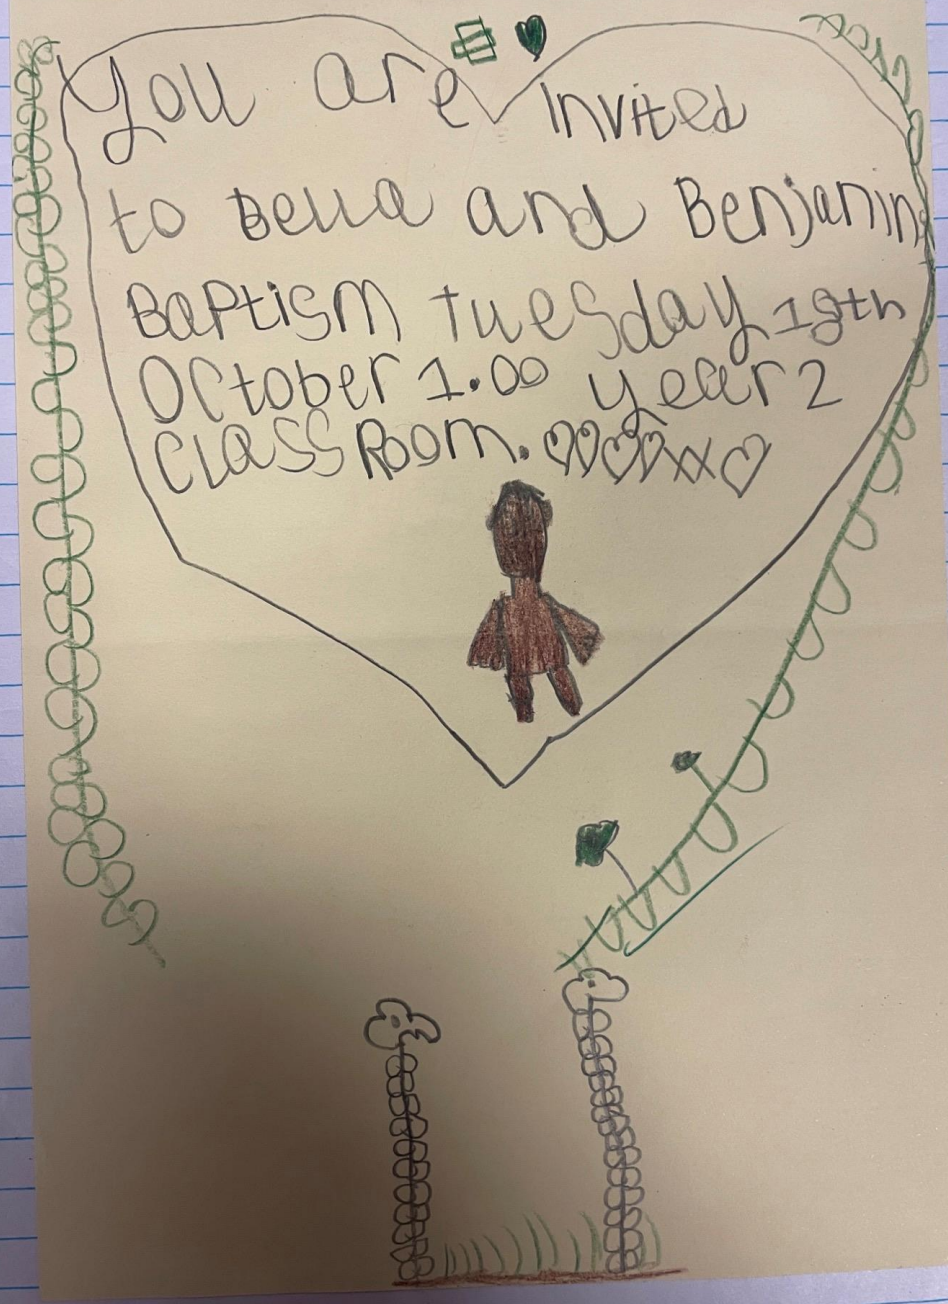 You are Invited
to Bella and Benjamin
Baptism Tuesday 18th
October 1.00 year 2
ClassRoom.♡♡♡♡xx♡